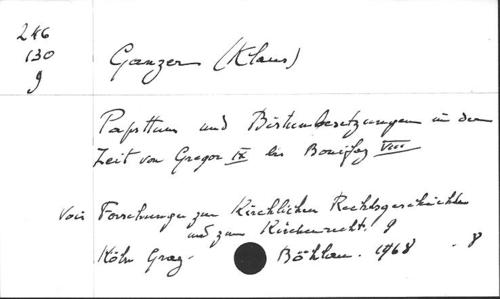 246
130
9
Ganzer (Klaus)
Papsttum und Bistumbesetzungen in der
Zeit von Gregor IX bis Bonifaz VIII
Voir Forschungen zur Kirchlichen Rechtsgeschichte
und zum Kirchenrecht. 9
Köln Graz. Böhlau. 1968. 8